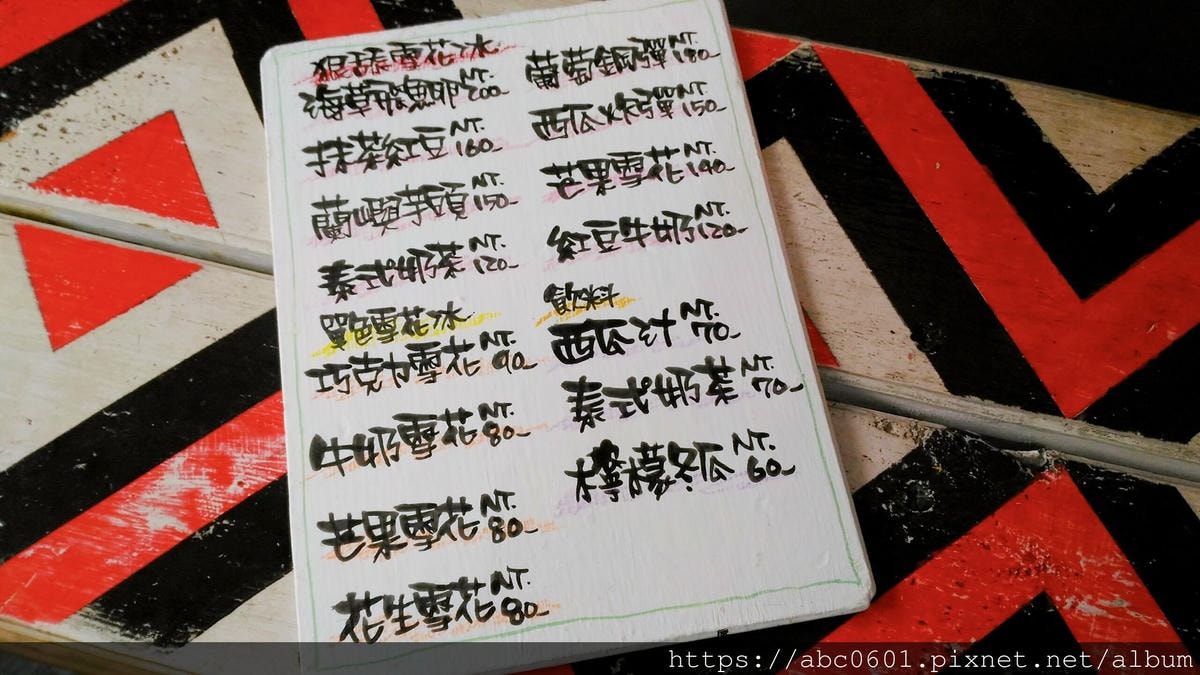 狠舔雪花冰
海草飛魚卵 NT.200-
抹茶紅豆 NT.160-
蘭嶼芋頭 NT.150-
泰式奶茶 NT.120-
單色雪花冰
巧克力雪花 NT.90-
牛奶雪花 NT.80-
芒果雪花 NT.80-
花生雪花 NT.80-
葡萄鋼彈 NT.180-
西瓜炸彈 NT.150-
芒果雪花 NT.190-
紅豆牛奶 NT.120-
飲料
西瓜汁 NT.70-
泰式奶茶 NT.70-
檸檬冬瓜 NT.60-
https://abc0601.pixnet.net/album